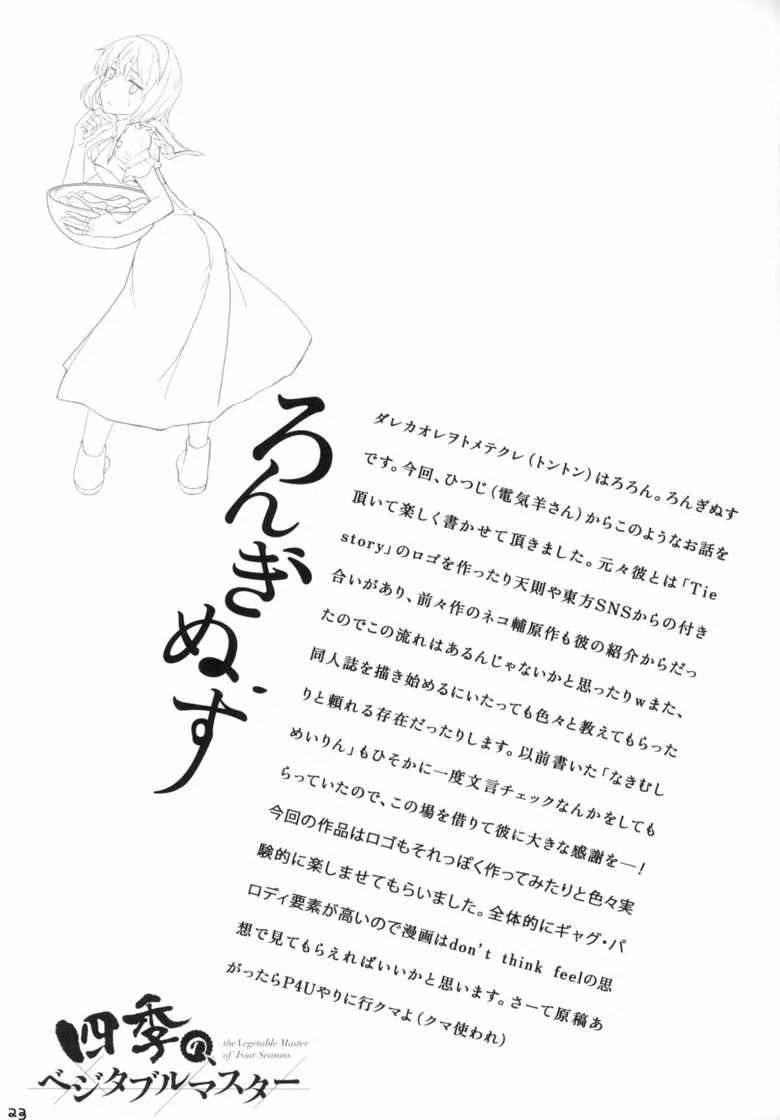 ろんぎぬす
ダレカオレヲトメテクレ(トントン)はろろん。ろんぎぬす
です。今回、ひつじ(電気羊さん)からこのようなお話を
頂いて楽しく書かせて頂きました。元々彼とは「Tie
story」のロゴを作ったり天則や東方SNSからの付き
合いがあり、前々作のネコ輔原作も彼の紹介からだっ
たのでこの流れはあるんじゃないかと思ったりwまた、
同人誌を描き始めるにいたっても色々と教えてもらった
りと頼れる存在だったりします。以前書いた「なきむし
めいりん」もひそかに一度文言チェックなんかをしても
らっていたので、この場を借りて彼に大きな感謝を―!
今回の作品はロゴもそれっぽく作ってみたりと色々実
験的に楽しませてもらいました。全体的にギャグ・パ
ロディ要素が高いので漫画はdon't think feelの思
想で見てもらえればいいかと思います。さーて原稿あ
がったらP4Uやりに行クマよ(クマ使われ)
四季の
the Vegetable Master
of Four Seasons
ベジタブルマスター
23